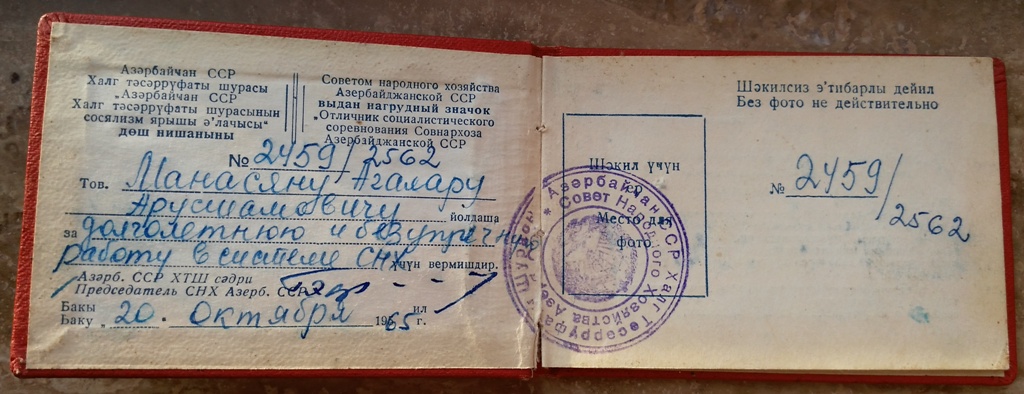 Азәрбајҹан ССР
Халг тәсәррүфаты шурасы
„Азәрбајҹан ССР
Халг тәсәррүфаты шурасынын
сосјализм јарышы ә'лачысы“
дөш нишаныны
Советом народного хозяйства
Азербайджанской ССР
выдан нагрудный значок
„Отличник социалистического
соревнования Совнархоза
Азербайджанской ССР
№ 2459/2562
Тов. Манасяну Агалару
Арушамовичу јолдаша
за долголетнюю и безупречную
работу в системе СНХ үчүн вермишдир.
Азәрб. ССР ХТШ сәдри
Председатель СНХ Азерб. ССР
Бакы ил
Баку „ 20 Октября 1965 г.
Шәкилсиз э'тибарлы дејил
Без фото не действительно
Шәкил үчүн
јер
Место для
фото
№ 2459/2562
Азәрбајҹан ССР Халг Тәсәррүфаты Шурасы
Совет Народного Хозяйства